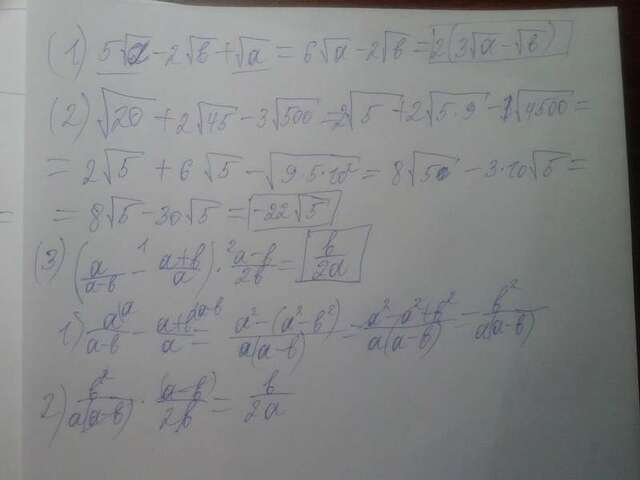 (1) 5√a - 2√b + √a = 6√a - 2√b = 2(3√a - √b)
(2) √20 + 2√45 - 3√500 = 2√5 + 2√5·9 - √4500 =
= 2√5 + 6√5 - √9·5·10² = 8√5 - 3·10√5 =
= 8√5 - 30√5 = -22√5
(3) (a/(a-b) - (a+b)/a) · (a-b)/2b = b/2a
1) a/(a-b) - (a+b)/a = (a² - (a² - b²))/(a(a-b)) = (a² - a² + b²)/(a(a-b)) = b²/(a(a-b))
2) b²/(a(a-b)) · (a-b)/2b = b/2a